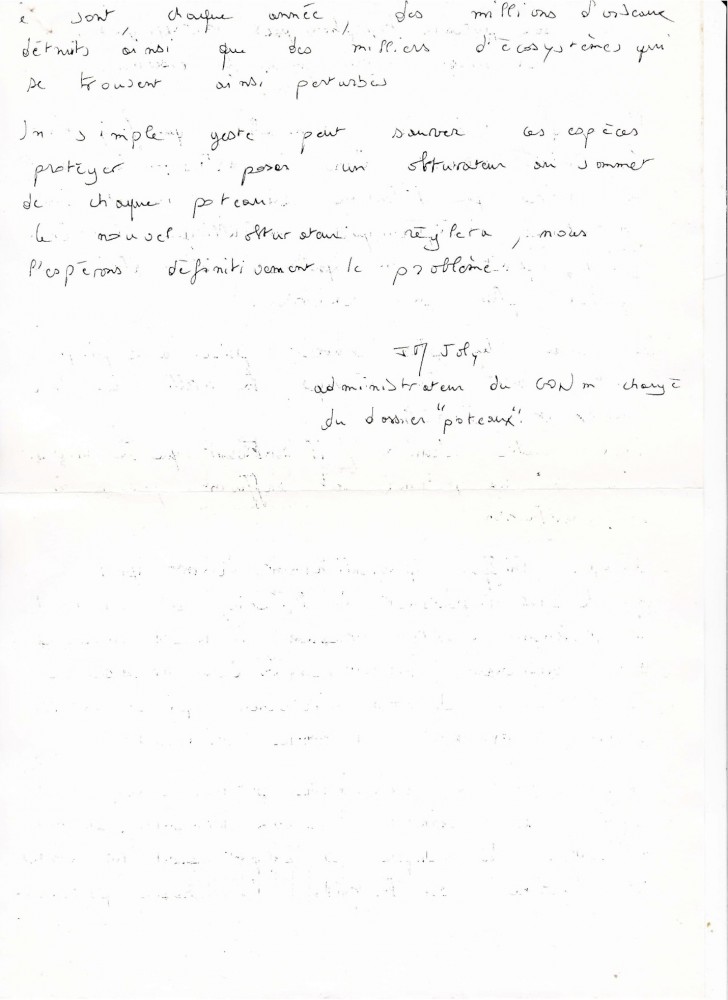 e sont, chaque année, des millions d'oiseaux
détruits ainsi que des milliers d'écosystèmes qui
se trouvent ainsi perturbés
Un simple geste peut sauver ces espèces
protéger poser un obturateur au sommet
de chaque poteau.
le nouvel obturateur règlera, nous
l'espérons définitivement le problème.
JM Joly
administrateur du GONm chargé
du dossier "poteaux".